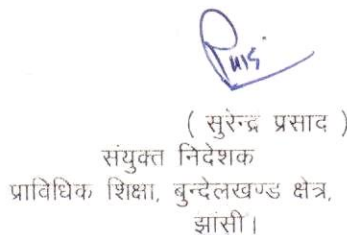 ( सुरेन्द्र प्रसाद )
संयुक्त निदेशक
प्राविधिक शिक्षा, बुन्देलखण्ड क्षेत्र,
झांसी।